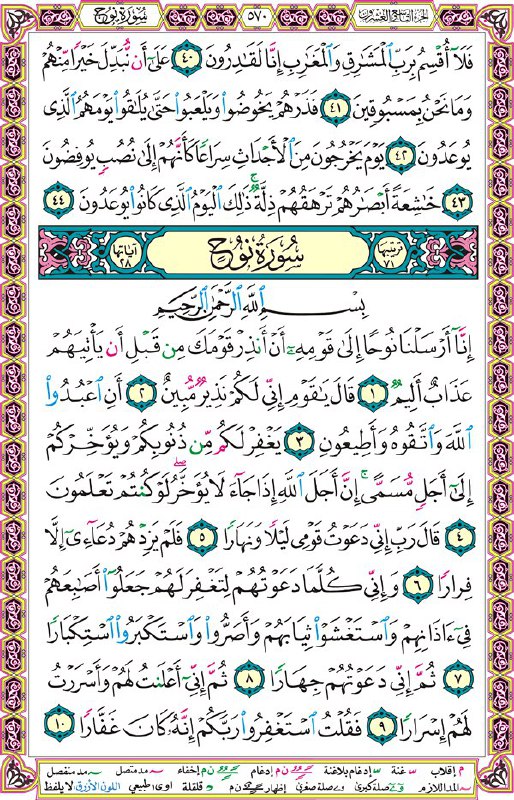 سورة نوح ٥٧٠ الجزء التاسع والعشرون
فَلَآ أُقْسِمُ بِرَبِّ ٱلْمَشَٰرِقِ وَٱلْمَغَٰرِبِ إِنَّا لَقَٰدِرُونَ ٤٠ عَلَىٰٓ أَن نُّبَدِّلَ خَيْرًا مِّنْهُمْ
وَمَا نَحْنُ بِمَسْبُوقِينَ ٤١ فَذَرْهُمْ يَخُوضُوا۟ وَيَلْعَبُوا۟ حَتَّىٰ يُلَٰقُوا۟ يَوْمَهُمُ ٱلَّذِى
يُوعَدُونَ ٤٢ يَوْمَ يَخْرُجُونَ مِنَ ٱلْأَجْدَاثِ سِرَاعًا كَأَنَّهُمْ إِلَىٰ نُصُبٍ يُوفِضُونَ
٤٣ خَٰشِعَةً أَبْصَٰرُهُمْ تَرْهَقُهُمْ ذِلَّةٌ ۚ ذَٰلِكَ ٱلْيَوْمُ ٱلَّذِى كَانُوا۟ يُوعَدُونَ ٤٤
ترتيبها ٧١ سُورَةُ نُوحٍ آياتها ٢٨
بِسْمِ ٱللَّهِ ٱلرَّحْمَٰنِ ٱلرَّحِيمِ
إِنَّآ أَرْسَلْنَا نُوحًا إِلَىٰ قَوْمِهِۦٓ أَنْ أَنذِرْ قَوْمَكَ مِن قَبْلِ أَن يَأْتِيَهُمْ
عَذَابٌ أَلِيمٌ ١ قَالَ يَٰقَوْمِ إِنِّى لَكُمْ نَذِيرٌ مُّبِينٌ ٢ أَنِ ٱعْبُدُوا۟
ٱللَّهَ وَٱتَّقُوهُ وَأَطِيعُونِ ٣ يَغْفِرْ لَكُم مِّن ذُنُوبِكُمْ وَيُؤَخِّرْكُمْ
إِلَىٰٓ أَجَلٍ مُّسَمًّى ۚ إِنَّ أَجَلَ ٱللَّهِ إِذَا جَآءَ لَا يُؤَخَّرُ ۖ لَوْ كُنتُمْ تَعْلَمُونَ
٤ قَالَ رَبِّ إِنِّى دَعَوْتُ قَوْمِى لَيْلًا وَنَهَارًا ٥ فَلَمْ يَزِدْهُمْ دُعَآءِىٓ إِلَّا
فِرَارًا ٦ وَإِنِّى كُلَّمَا دَعَوْتُهُمْ لِتَغْفِرَ لَهُمْ جَعَلُوٓا۟ أَصَٰبِعَهُمْ
فِىٓ ءَاذَانِهِمْ وَٱسْتَغْشَوْا۟ ثِيَابَهُمْ وَأَصَرُّوا۟ وَٱسْتَكْبَرُوا۟ ٱسْتِكْبَارًا
٧ ثُمَّ إِنِّى دَعَوْتُهُمْ جِهَارًا ٨ ثُمَّ إِنِّىٓ أَعْلَنتُ لَهُمْ وَأَسْرَرْتُ
لَهُمْ إِسْرَارًا ٩ فَقُلْتُ ٱسْتَغْفِرُوا۟ رَبَّكُمْ إِنَّهُۥ كَانَ غَفَّارًا ١٠
م إقلاب غنة إدغام بلاغنة ن م إدغام ن م إخفاء مد متصل مد منفصل
المد اللازم صلة كبرى صلة صغرى إظهار ن م قلقلة اوى طبيعي اللون الأزرق لا يلفظ